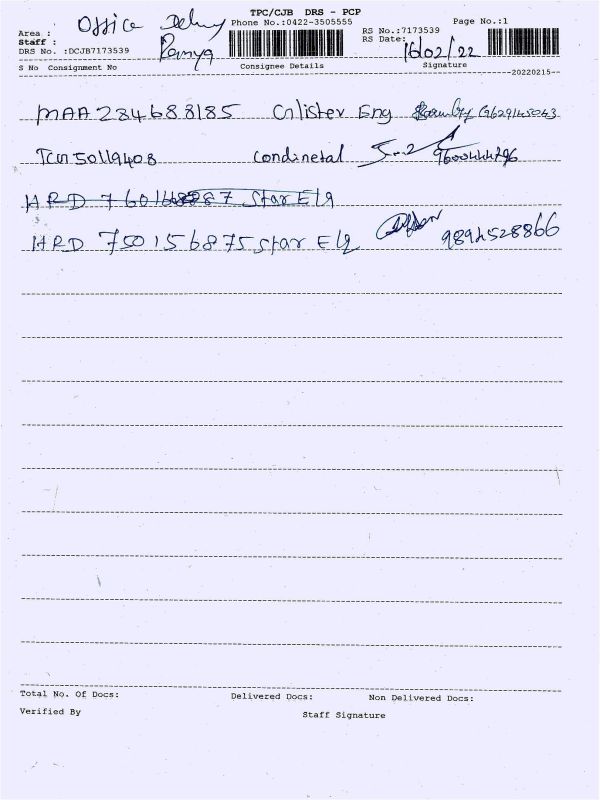 TPC/CJB DRS - PCP
Area : Office Phone No.:0422-3505555 Page No.:1
Staff : Ramya RS No.:7173539
DRS No. :DCJB7173539 RS Date: 16/02/22
S No Consignment No Consignee Details Signature
--20220215--
MAA 284688185 Calister Eng
TCM 50119408 Condinetal 9600444796
HRD Star Elq
HRD 750156875 Star Elq 9894528866
Total No. Of Docs: Delivered Docs: Non Delivered Docs:
Verified By Staff Signature